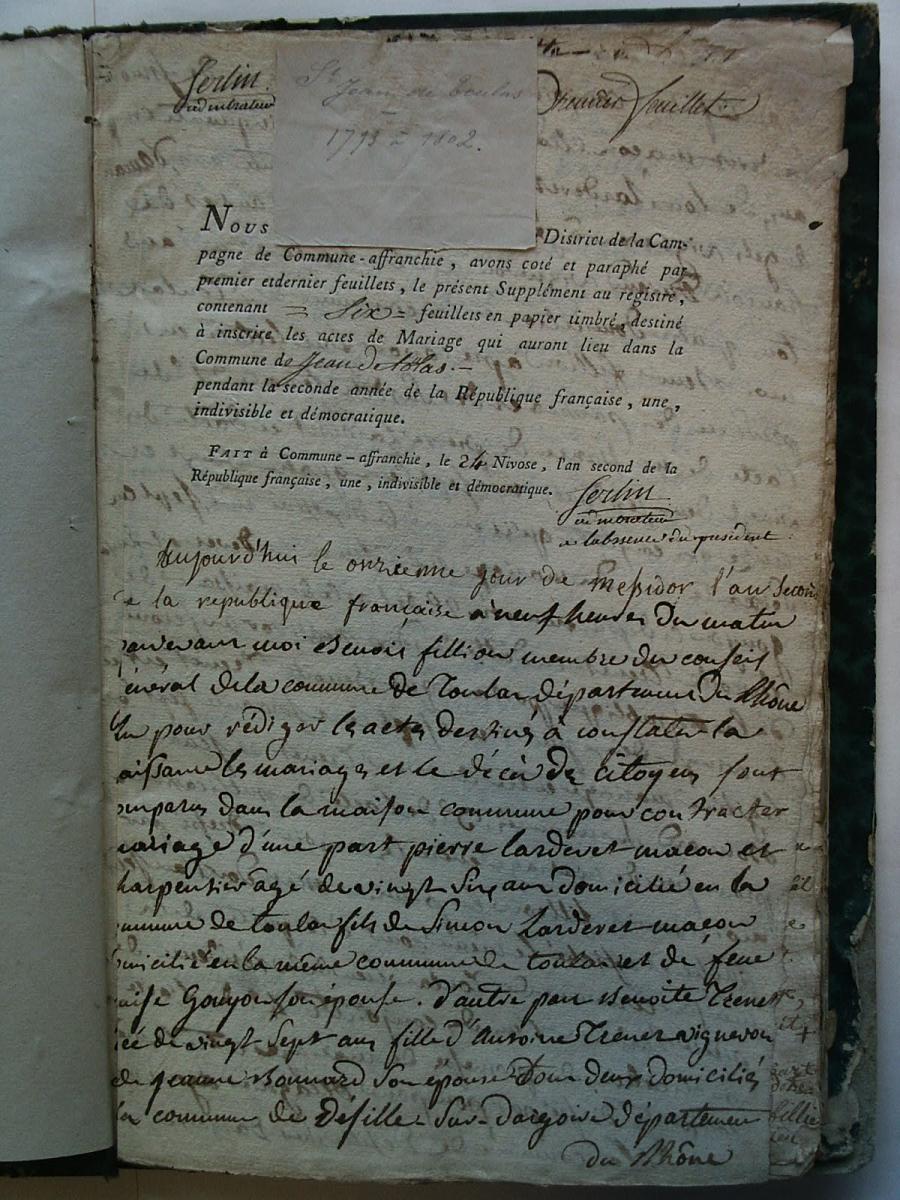 Serlin
administrateur
St Jean de Toulas
1793 à 1802.
Premier feuillet
Nous District de la Cam-
pagne de Commune-affranchie, avons coté et paraphé par
premier et dernier feuillets, le présent Supplément au registre,
contenant = Six = feuillets en papier timbré, destiné
à inscrire les actes de Mariage qui auront lieu dans la
Commune de Jean de tolas. —
pendant la seconde année de la République française, une,
indivisible et démocratique.
Fait à Commune-affranchie, le 24 Nivose, l'an second de la
République française, une, indivisible et démocratique.
Serlin
administrateur
a labsence du president
aujourd'hui le onzieme jour de Messidor l'an second
de la republique française a neuf heures du matin
pardevant moi Benoit fillion membre du conseil
général de la commune de Toulas département du Rhône
élu pour rédiger les actes destinés à constater la
naissance les mariages et le décès des citoyens sont
comparus dans la maison commune pour contracter
mariage d'une part pierre larderet macon et
charpentier agé de vingt six ans domicilié en la
commune de toulas fils de Simon Larderet macon
domicilié en la même commune de toulas et de feue
Gouyon son épouse. d'autre part Benoite Trenet
agée de vingt sept ans fille d'Antoine Trenet vigneron
de jeanne Bonnard son épouse tous deux domiciliés
la commune de Défille Sur-dargoire département
du Rhône